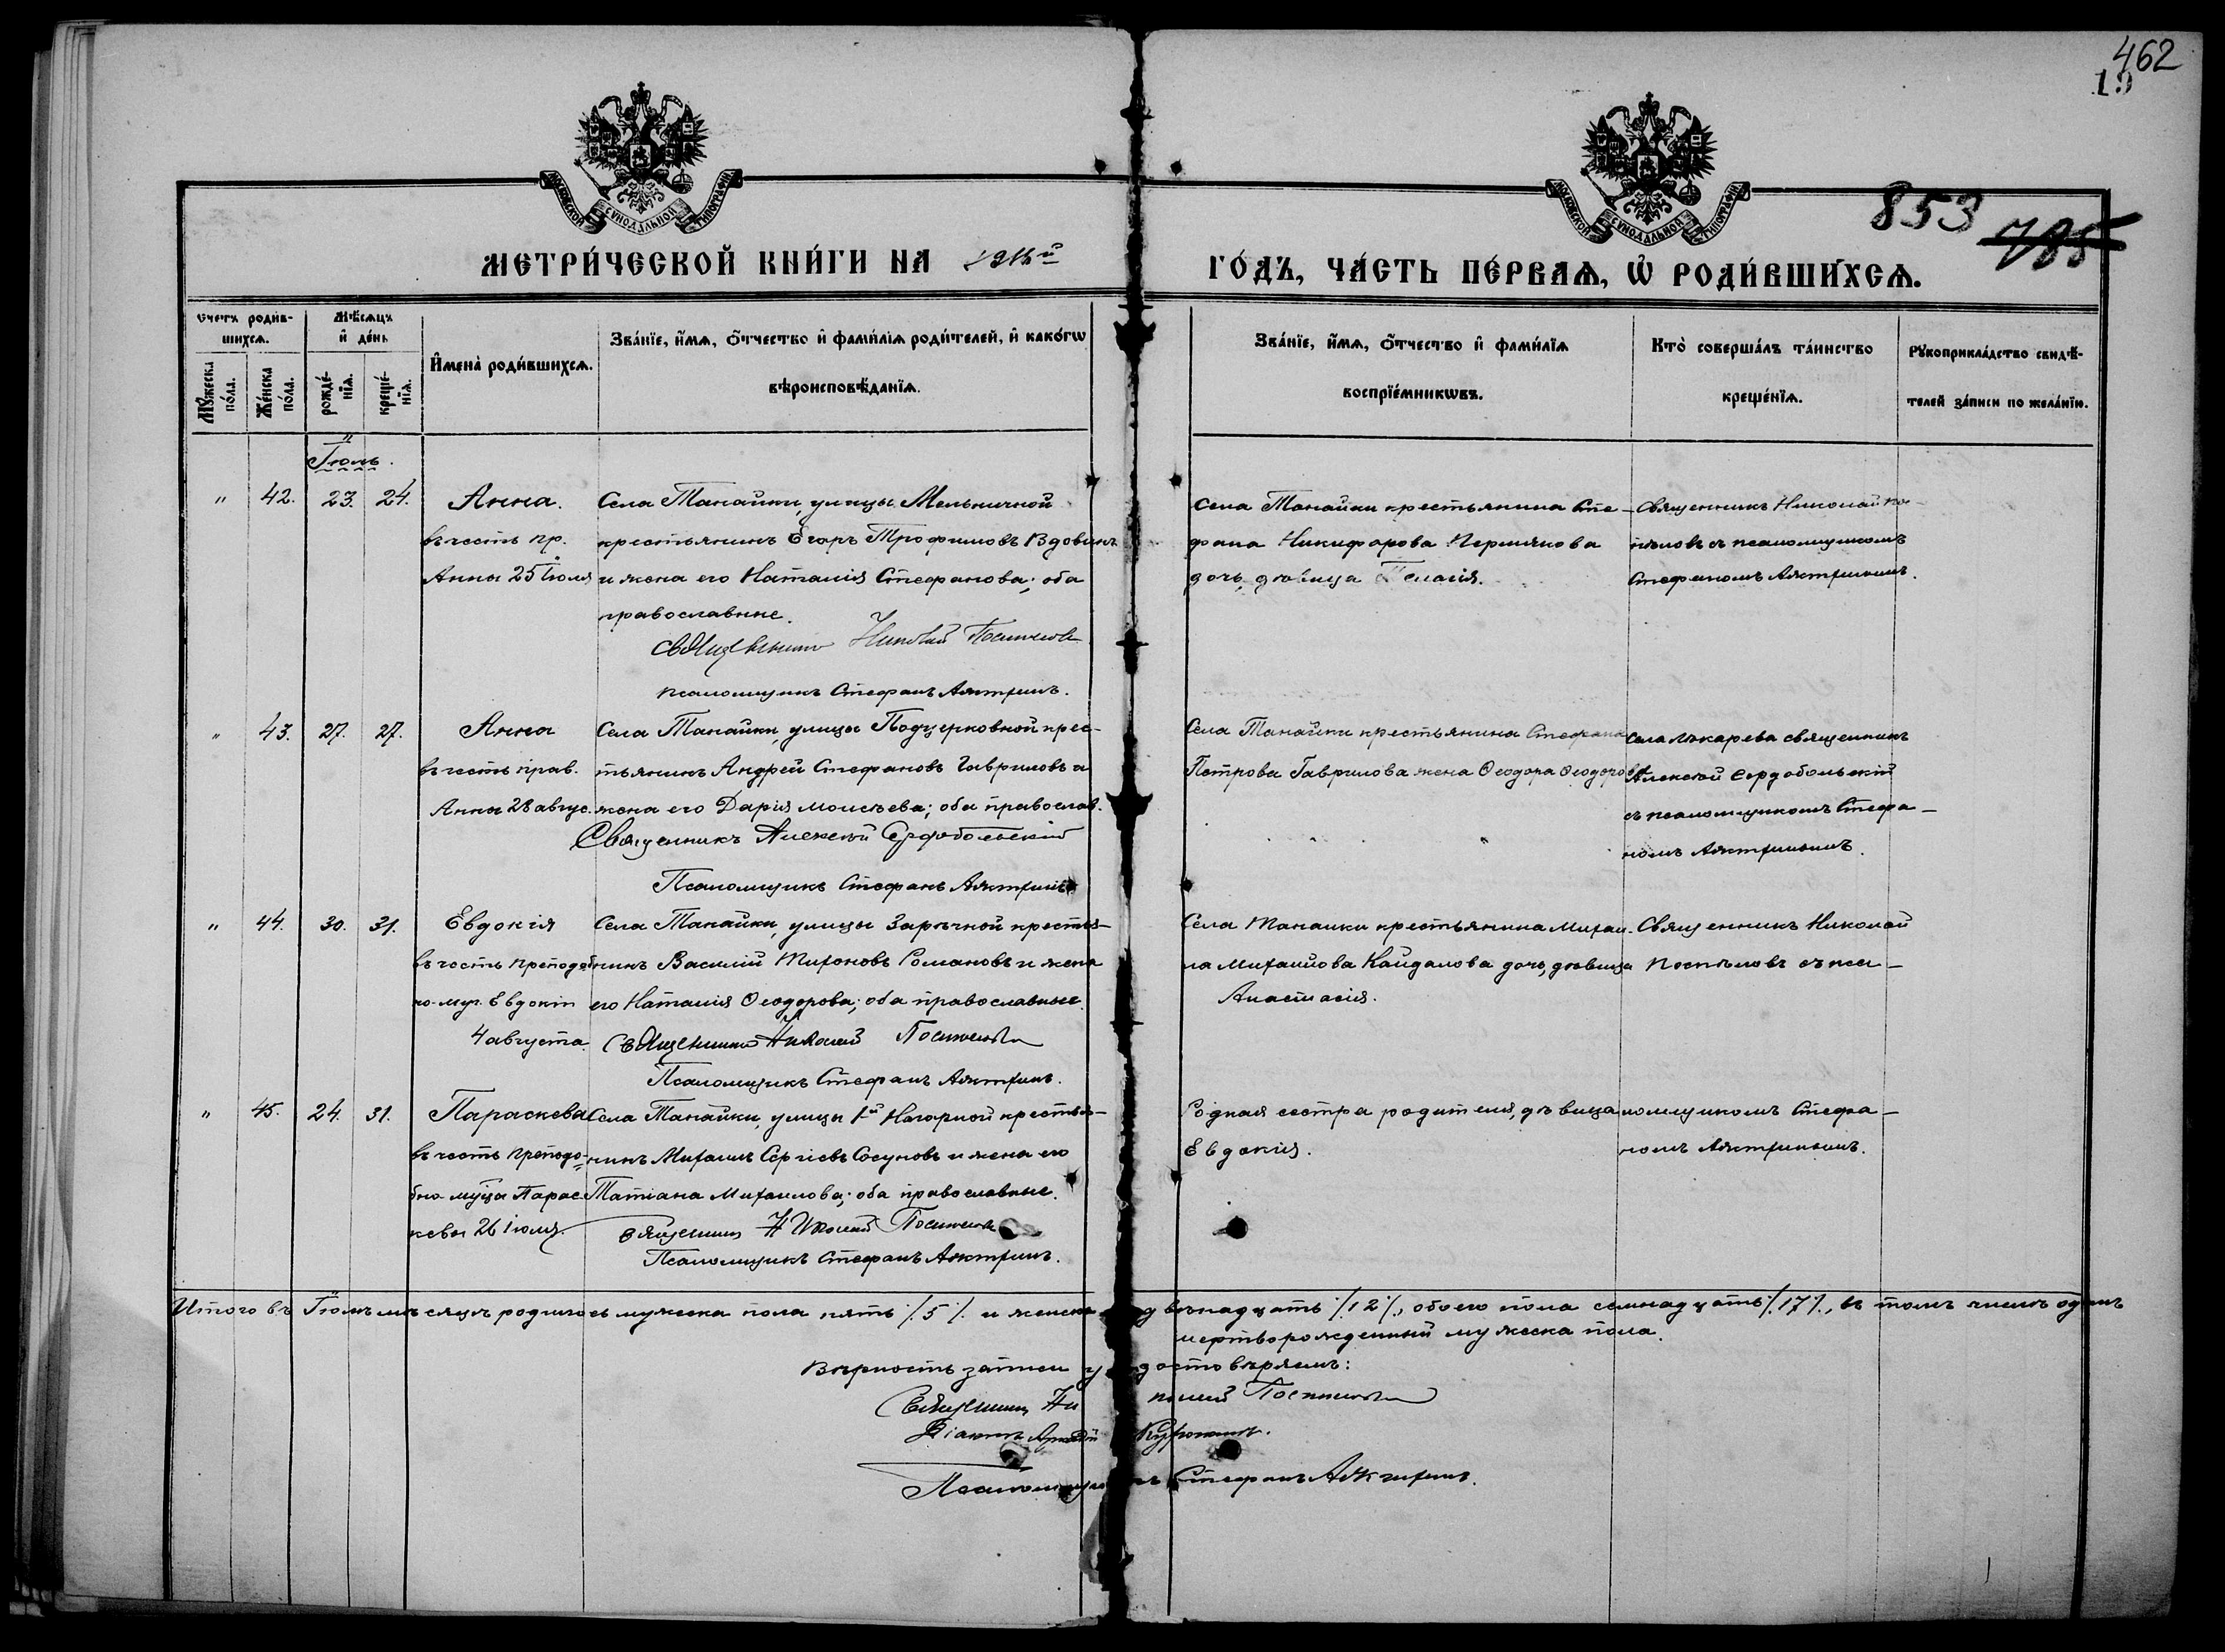 462
19
853
785
МОСКОВСКОЙ СѴНОДАЛЬНОЙ ТИПОГРАФІИ
МОСКОВСКОЙ СѴНОДАЛЬНОЙ ТИПОГРАФІИ
МЕТРИ́ЧЕСКОЙ КНИ́ГИ НА
ГО́ДЪ, ЧА́СТЬ ПЕ́РВАѦ, Ѡ҆ РОДИ́ВШИХСѦ.
Счетъ роди́в-
шихсѧ.
Мѣ́сѧцъ
и҆ де́нь
Мꙋ́жеска по́ла.
Же́нска по́ла.
рожде́-
нїѧ.
креще́-
нїѧ.
И҆мена̀ роди́вшихсѧ.
Зва́нїе, и҆́мѧ, ѻ҆́тчество и҆ фами́лїѧ роди́телей, и҆ како́гѡ
вѣроисповѣ́данїѧ.
Зва́нїе, и҆́мѧ, ѻ҆́тчество и҆ фами́лїѧ
воспрїе́мникѡвъ.
Кто̀ соверша́лъ та́инство
креще́нїѧ.
Рꙋкоприкла́дство свидѣ́-
телей за́писи по жела́нїю.
Іюль.
" 42. 23. 24.
Анна.
въ честь пр.
Анны 25 Іюля
Села Танайки, улицы Мельничной
крестьянинъ Егоръ Трофимовъ Вдовинъ
и жена его Наталія Стефанова; оба
православные.
Священникъ Николай Поспеловъ
псаломщикъ Стефанъ Аяктринъ.
Села Танайки крестьянина Сте-
фана Никифорова Пермякова
дочь, дѣвица Пелагія.
Священникъ Николай По-
спѣловъ съ псаломщикомъ
Стефаномъ
" 43. 27. 27.
Анна
въ честь прав.
Анны 28 авгус.
Села Танайки, улицы Подцерковной крес-
тьянинъ Андрей Стефановъ Гавриловъ и
жена его Дарія Моисѣева; оба православ.
Священникъ Алексѣй Сердобольскій
Псаломщикъ Стефанъ
Села Танайки крестьянина Стефана
Петрова Гаврилова жена Ѳеодора Ѳеодорова
Села Лекарева священникъ
Алексѣй Сердобольскій
съ псаломщикомъ Стефа-
номъ
" 44. 30. 31.
Евдокія
въ честь преподоб
но-муч. Евдокіи
4 августа.
Села Танайки, улицы Зарѣчной крестья-
нинъ Василій Тихоновъ Романовъ и жена
его Наталія Ѳеодорова; оба православные.
Священникъ Николай Поспеловъ
Псаломщикъ Стефанъ
Села Танайки крестьянина Михаи-
ла Михайлова Кайдалова дочь, дѣвица
Анастасія.
Священникъ Николай
Поспѣловъ съ пса-
" 45. 24. 31.
Параскева
въ честь преподо-
бно-муц̃ы Парас-
кевы 26 Іюля.
Села Танайки, улицы 1й Нагорной крестья-
нинъ Михаилъ Сергіевъ Сосуновъ и жена его
Татіана Михаилова; оба православные.
Священникъ Николай Поспеловъ
Псаломщикъ Стефанъ
Родная сестра родителя, дѣвица
Евдокія.
ломщикомъ Стефа-
номъ
Итого въ Іюлѣ мѣсяцѣ родилось мужеска пола пять /5/. и женска двѣнадцать /12/, обоего пола семнадцать /17/, въ томъ числѣ одинъ
мертворожденный мужеска пола.
Вѣрность записи удостовѣряемъ:
Священникъ Николай Поспеловъ
Діаконъ
Псаломщикъ Стефанъ